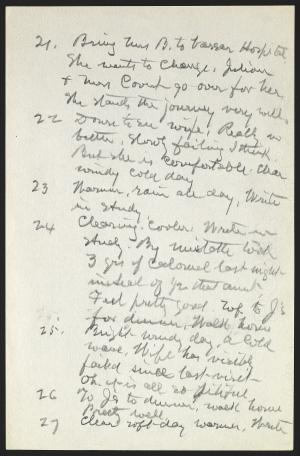 21. Bring Mrs B. to Vassar Hospital
She wants to change, Julian
& Mrs Count go over for her
She stands the journey very well.
22 Down to see wife; Really no
better, slowly failing I think.
But she is comfortable. Clear
windy cold day
23 Warmer, rain all day, Write
in study
24 Clearing, cooler. Write in
study. By mistake took
3 grs of Calomel last night
instead of
Feel pretty good. up to J's
for dinner, Walk home
25. Bright windy day, a cold
wave, Wife has visibly
failed since last visit -
Oh it is all so pitiful
26 To Js to dinner, walk home
Pretty well,
27 Clear soft day warmer, Write